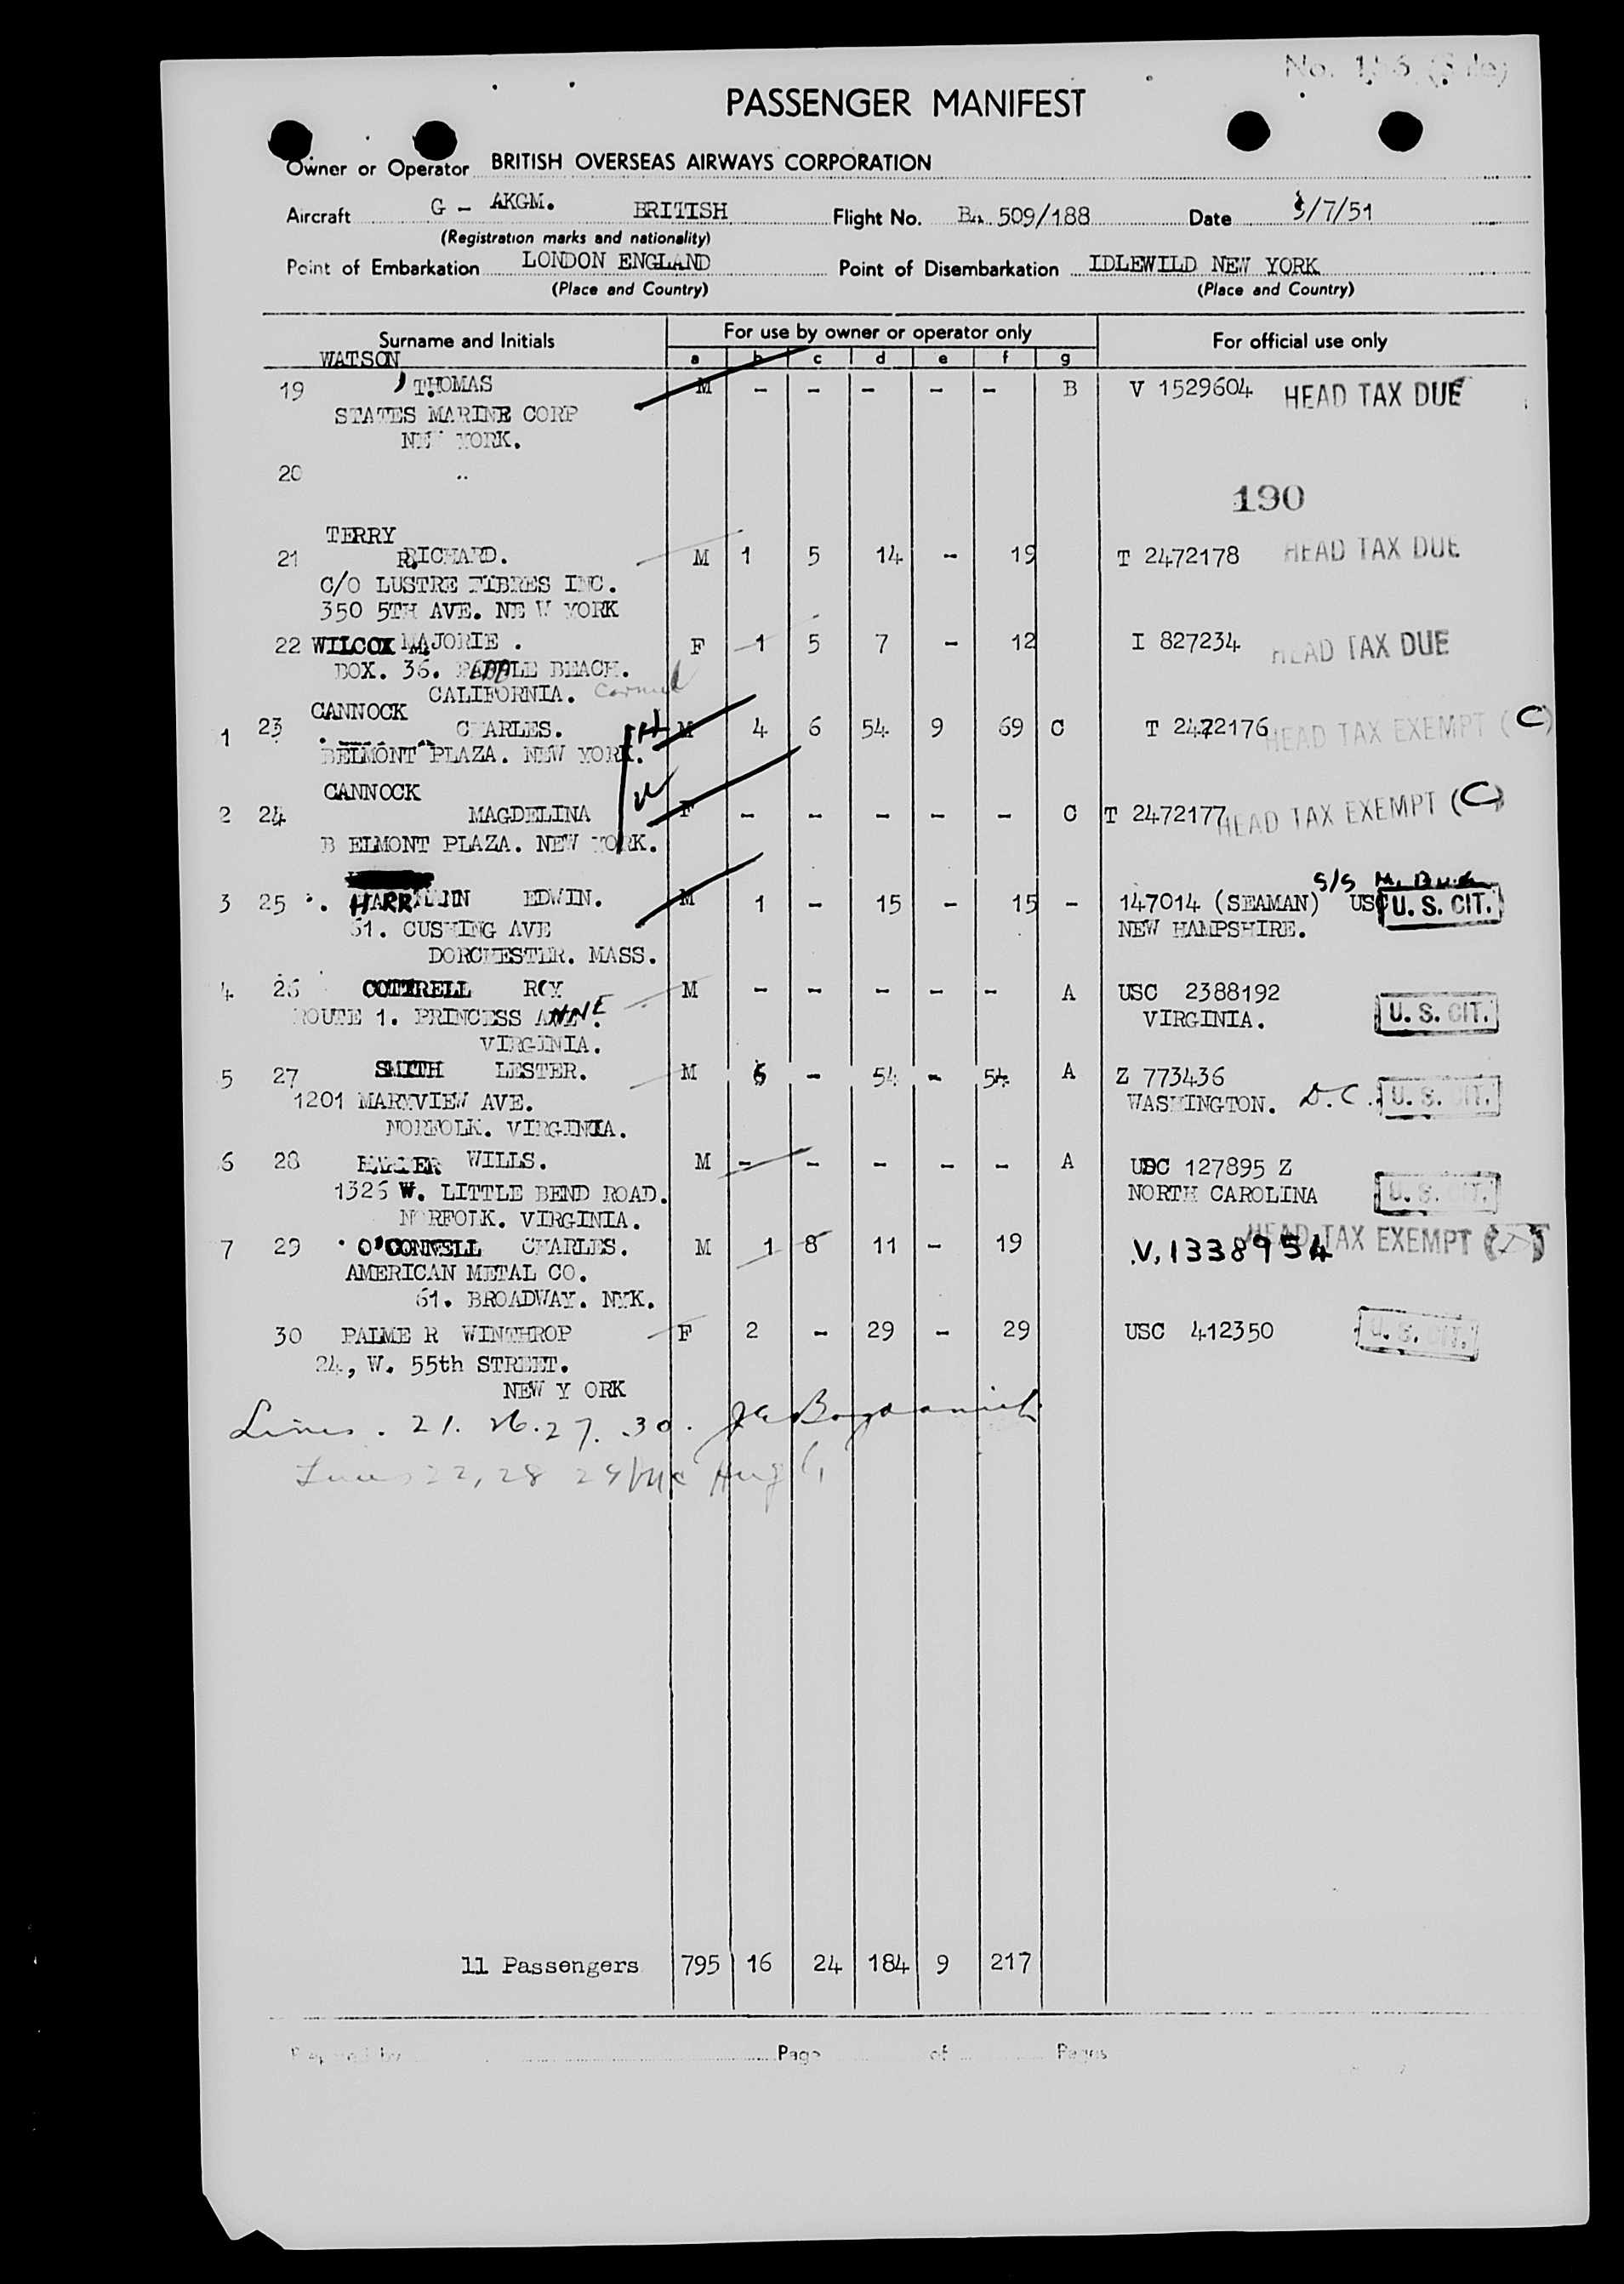 PASSENGER MANIFEST
Owner or Operator BRITISH OVERSEAS AIRWAYS CORPORATION
Aircraft G - AKGM. BRITISH Flight No. BA 509/188 Date /7/51
(Registration marks and nationality)
Point of Embarkation LONDON ENGLAND Point of Disembarkation IDLEWILD NEW YORK
(Place and Country) (Place and Country)
Surname and Initials For use by owner or operator only For official use only
a b c d e f g
WATSON
19 THOMAS M - - - - - B V 1529604 HEAD TAX DUE
STATES MARINE CORP
NEW YORK.
20
190
TERRY
21 RICHARD. M 1 5 14 - 19 T 2472178 HEAD TAX DUE
C/O LUSTRE FIBRES INC.
350 5TH AVE. NE W YORK
22 WILCOX MAJORIE . F 1 5 7 - 12 I 827234 HEAD TAX DUE
BOX. 36. BEACH.
CALIFORNIA. Carmel
CANNOCK
1 23 CHARLES. M 4 6 54 9 69 C T 2472176 HEAD TAX EXEMPT (C)
BELMONT PLAZA. NEW YORK.
CANNOCK
2 24 MAGDELINA F - - - - - C T 2472177 HEAD TAX EXEMPT (C)
B ELMONT PLAZA. NEW YORK.
S/S
3 25 EDWIN. M 1 - 15 - 15 - 147014 (SEAMAN) USC U. S. CIT.
61. CUSHING AVE NEW HAMPSHIRE.
DORCHESTER. MASS.
4 26 COTTRELL ROY M - - - - - A USC 2388192
ROUTE 1. PRINCESS ANNE. VIRGINIA. U. S. CIT.
VIRGINIA.
5 27 SMITH LESTER. M 6 - 54 - 54 A Z 773436
1201 MARYVIEW AVE. WASHINGTON. D.C. U. S. CIT.
NORFOLK. VIRGINIA.
6 28 WILLS. M - - - - - A USC 127895 Z
1326 W. LITTLE BEND ROAD. NORTH CAROLINA U. S. CIT.
NORFOLK. VIRGINIA.
7 29 O'CONNELL CHARLES. M 1 8 11 - 19 V. 1338954 HEAD TAX EXEMPT
AMERICAN METAL CO.
61. BROADWAY. NYK.
30 PALME R WINTHROP F 2 - 29 - 29 USC 412350 U. S. CIT.
24, W. 55th STREET.
NEW Y ORK
Lines . 21. 26. 27. 30.
Lines 22, 28 29
11 Passengers 795 16 24 184 9 217
Prepared by Page of Pages